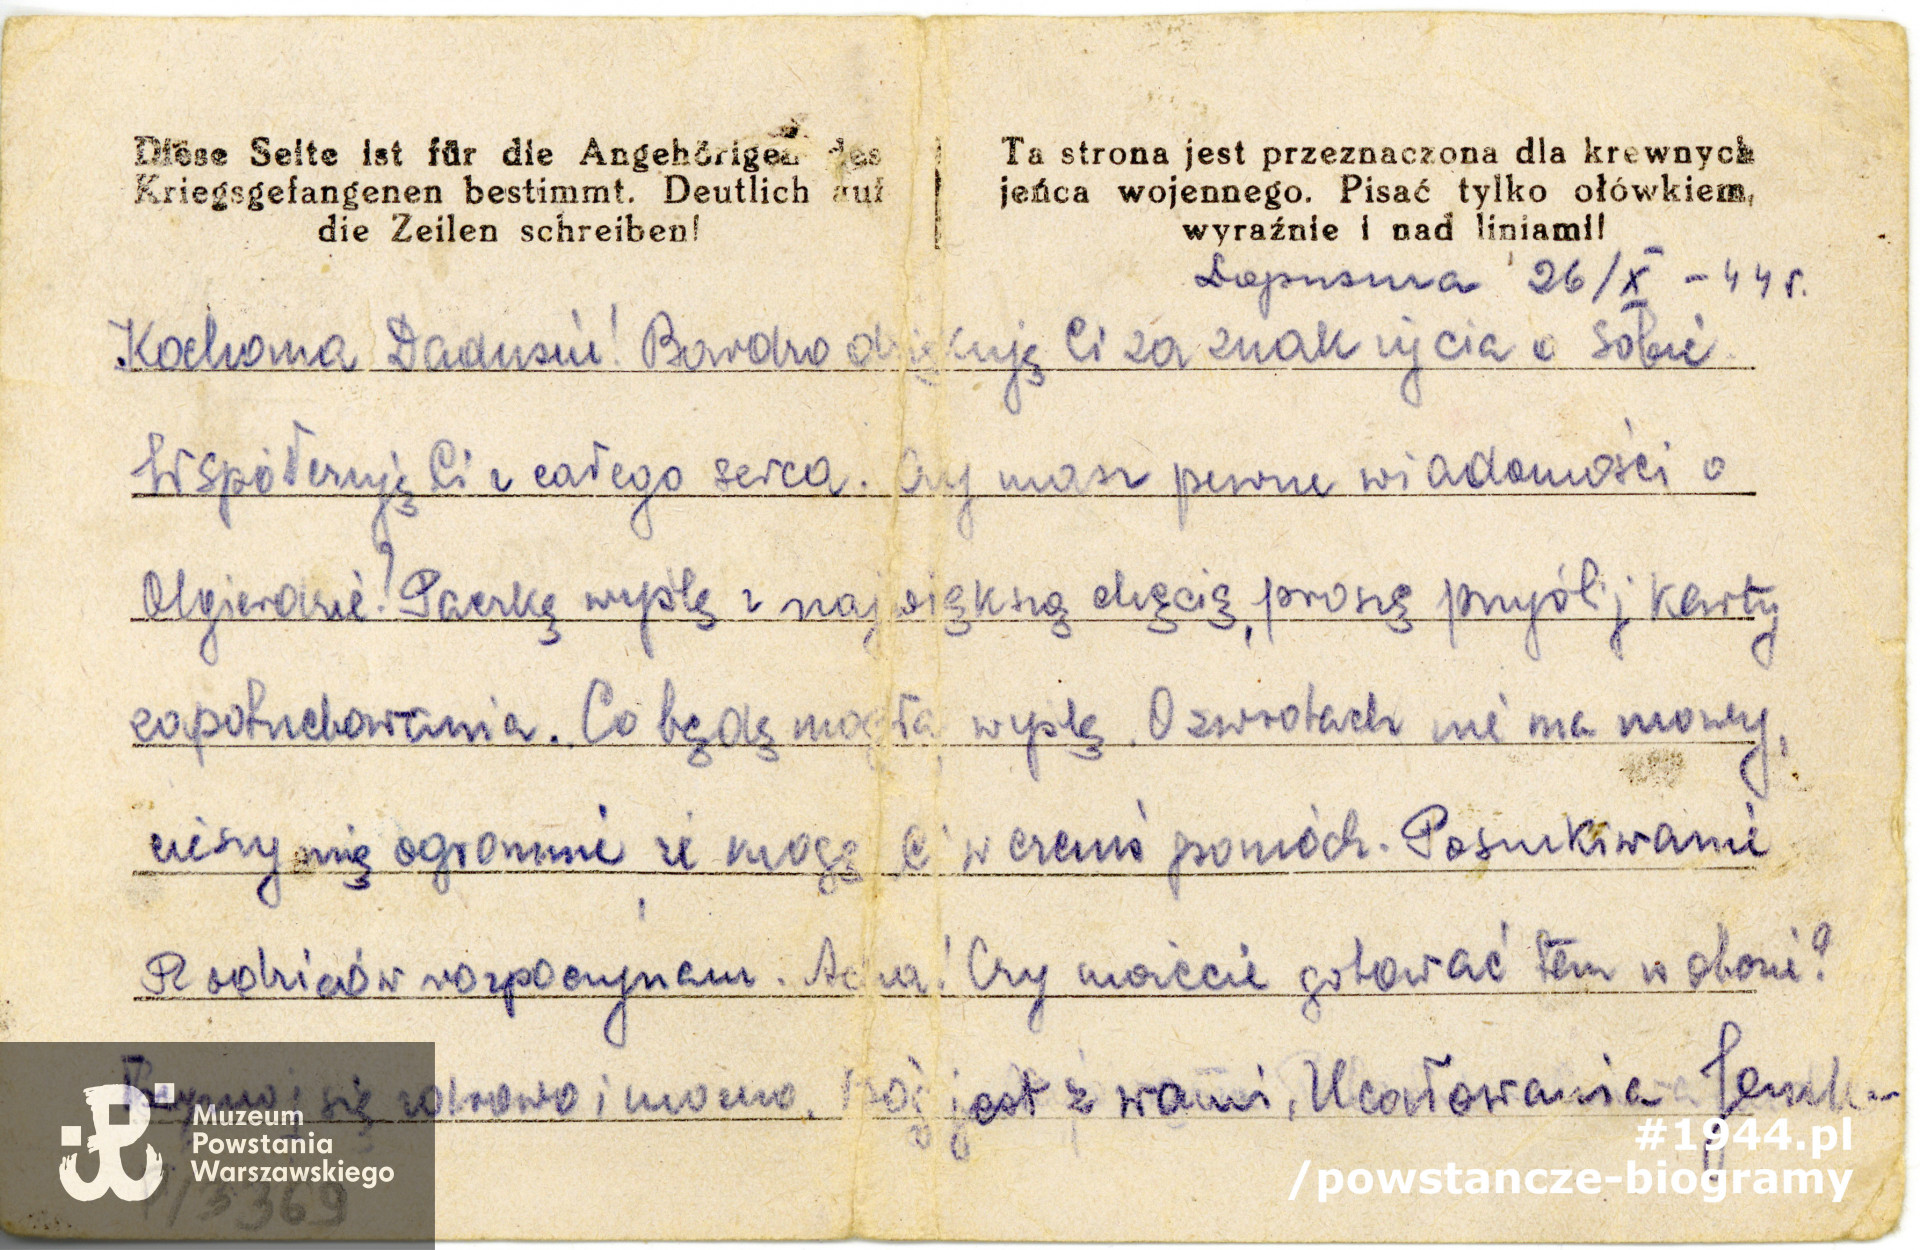 Diese Seite ist für die Angehörigen des
Kriegsgefangenen bestimmt. Deutlich auf
die Zeilen schreiben!
Ta strona jest przeznaczona dla krewnych
jeńca wojennego. Pisać tylko ołówkiem,
wyraźnie i nad liniami!
Łopuszna 26/XI - 44 r.
Kochana Dadusiu! Bardzo dziękuję Ci za znak życia o sobie.
Współczuję Ci z całego serca. Czy masz pewne wiadomości o
Olgierdzie? Paczkę wyślę z największą chęcią, proszę przyślij karty
zapotrzebowania. Co będę mogła wyślę. O zwrotach nie ma mowy,
cieszy mię ogromnie że mogę Ci w czemś pomóch. Poszukiwanie
Rodziców rozpoczynam. Czy możecie gotować tam w obozie?
Trzymaj się zdrowo i mocno. Bóg jest z wami, Ucałowania
Muzeum
Powstania
Warszawskiego
P/3369
#1944.pl
/powstancze-biogramy